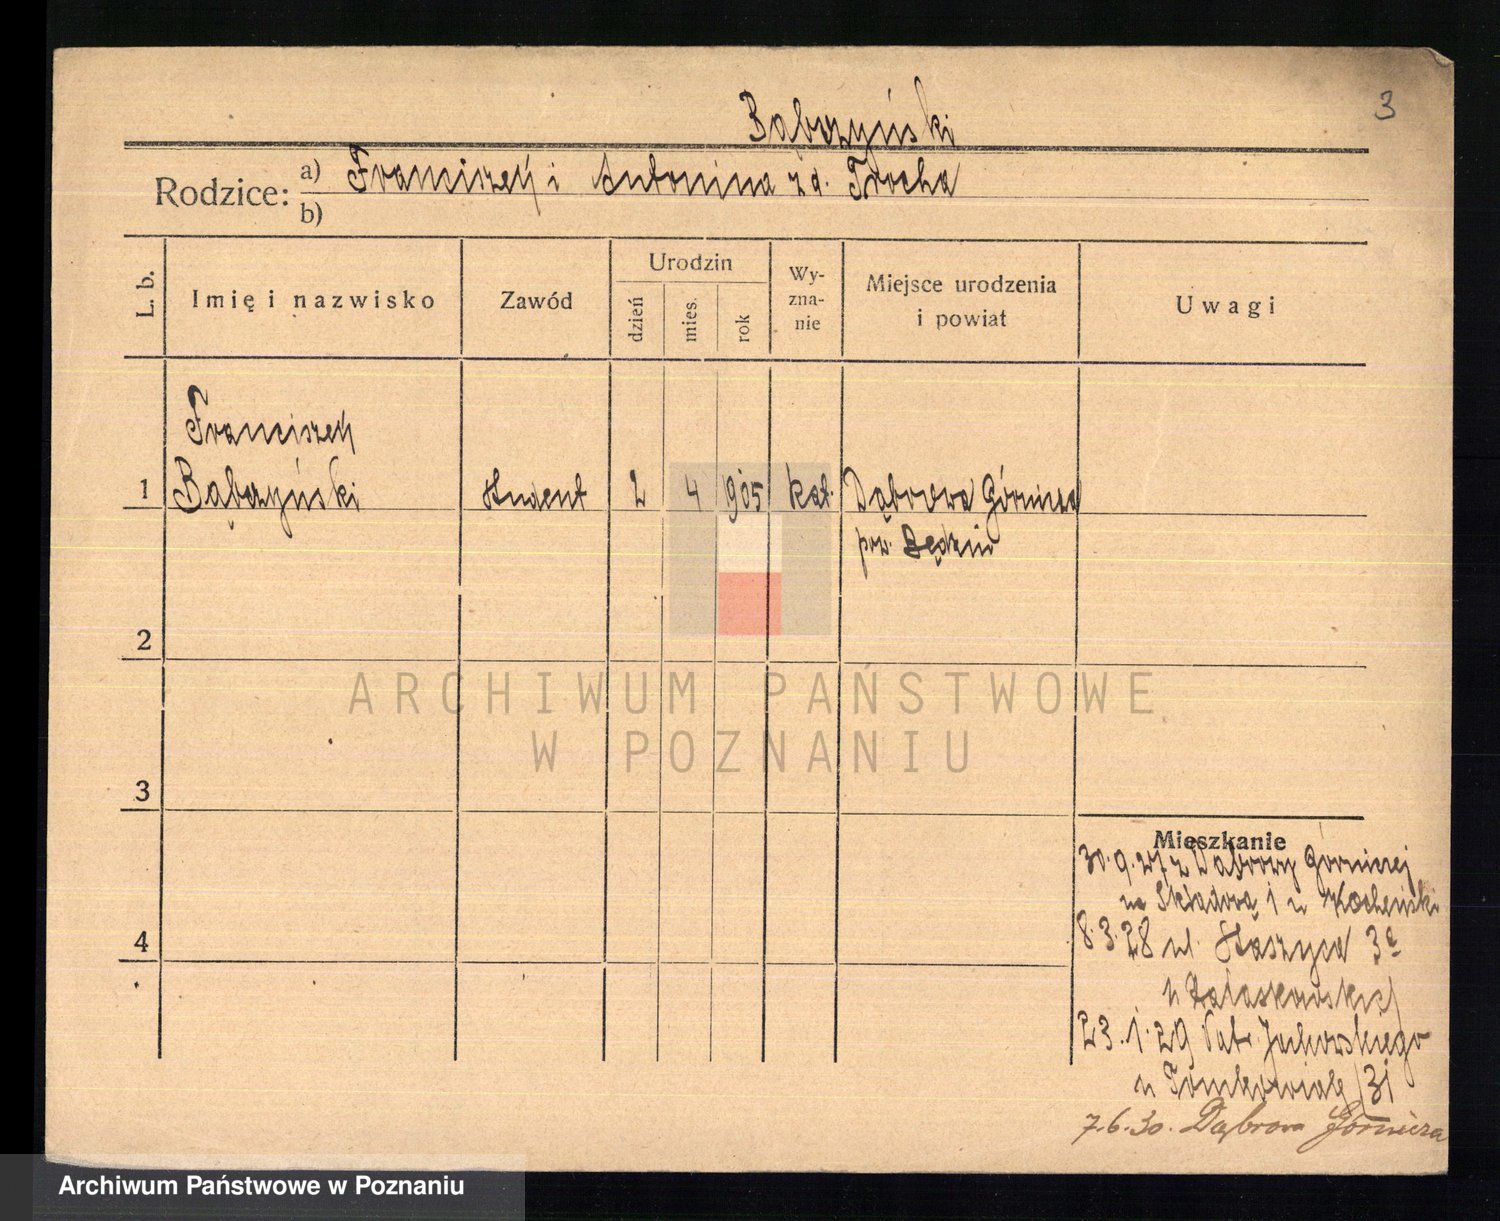 3
Bąbrzyński
Rodzice: a) Franciszek i Antonina z d. Trocha
b)
L. b. Imię i nazwisko Zawód Urodzin dzień mies. rok Wy-zna-nie Miejsce urodzenia i powiat Uwagi
Franciszek
1 Bąbrzyński student 2 4 905 kat. Dąbrowa Górnicza
pow. Będzin
2
ARCHIWUM PAŃSTWOWE
W POZNANIU
3
Mieszkanie
30.9.27 z Dąbrowy Górniczej
na Składową 1 u
4
8.3.28 ul. Staszyca 3a
u
23.1.29 Patr. Jackowskiego
u 31
7.6.30. Dąbrowa Górnicza
Archiwum Państwowe w Poznaniu